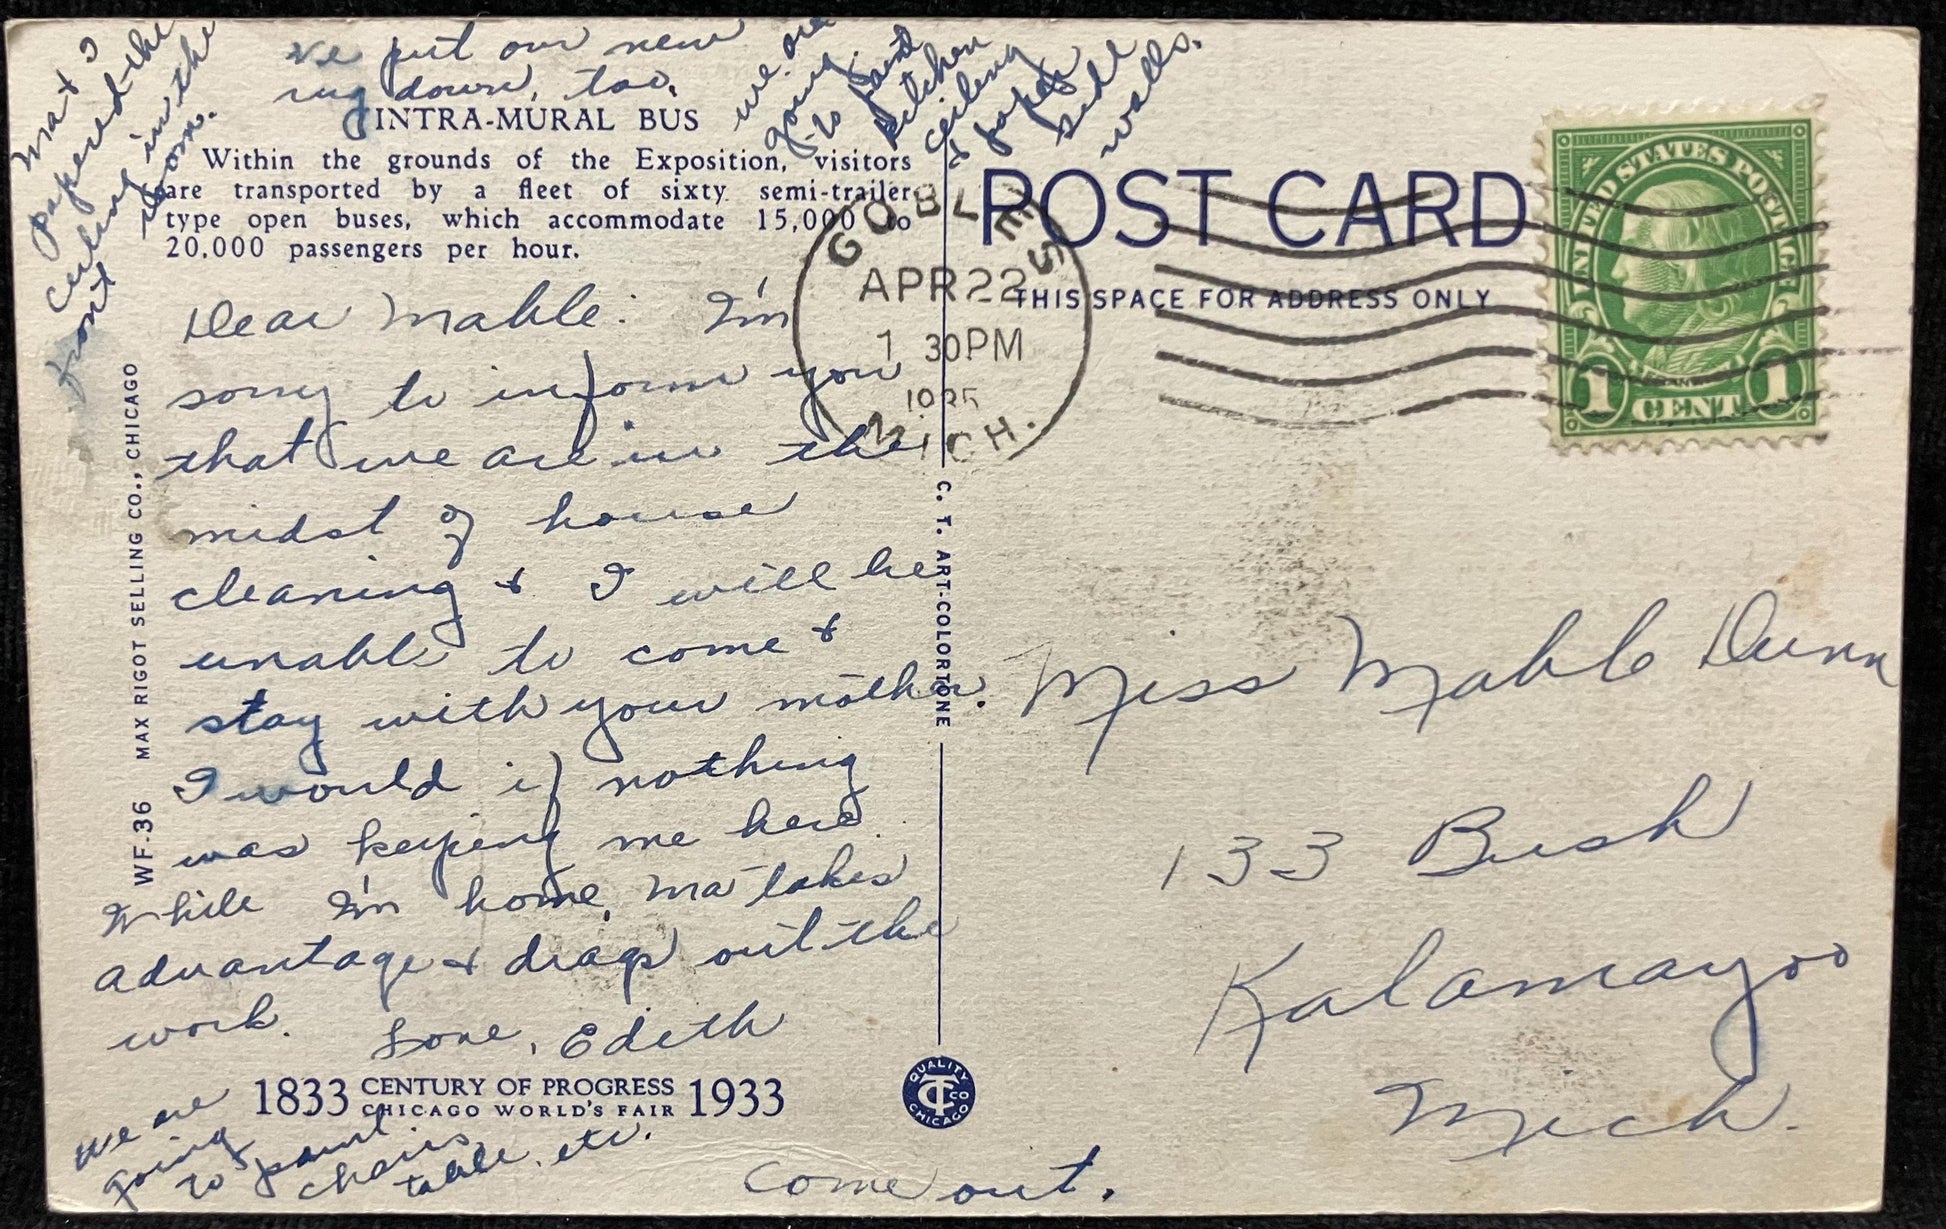 Ma & I
papered the
ceiling in the
front room.
We put our new
rug down, too.
we are
going
to paint
kitchen
ceiling
& paper
side
walls.
INTRA-MURAL BUS
Within the grounds of the Exposition, visitors
are transported by a fleet of sixty semi-trailer
type open buses, which accommodate 15,000 to
20,000 passengers per hour.
Dear Mable: I'm
sorry to inform you
that we are in the
midst of house
cleaning & I will be
unable to come &
stay with your mother.
I would if nothing
was keeping me here.
While I'm home, Ma takes
advantage & drags out the
work.
Love, Edith
1833 CENTURY OF PROGRESS 1933
CHICAGO WORLD'S FAIR
We are
going
to paint
chairs,
table, etc.
Come out.
WF-36 MAX RIGOT SELLING CO., CHICAGO
C. T. ART-COLORTONE
QUALITY
CT CO
CHICAGO
POST CARD
THIS SPACE FOR ADDRESS ONLY
GOBLES
APR 22
1 30 PM
1935
MICH.
UNITED STATES POSTAGE
FRANKLIN
1 CENT 1
Miss Mable Dunn
133 Bush
Kalamazoo
Mich.